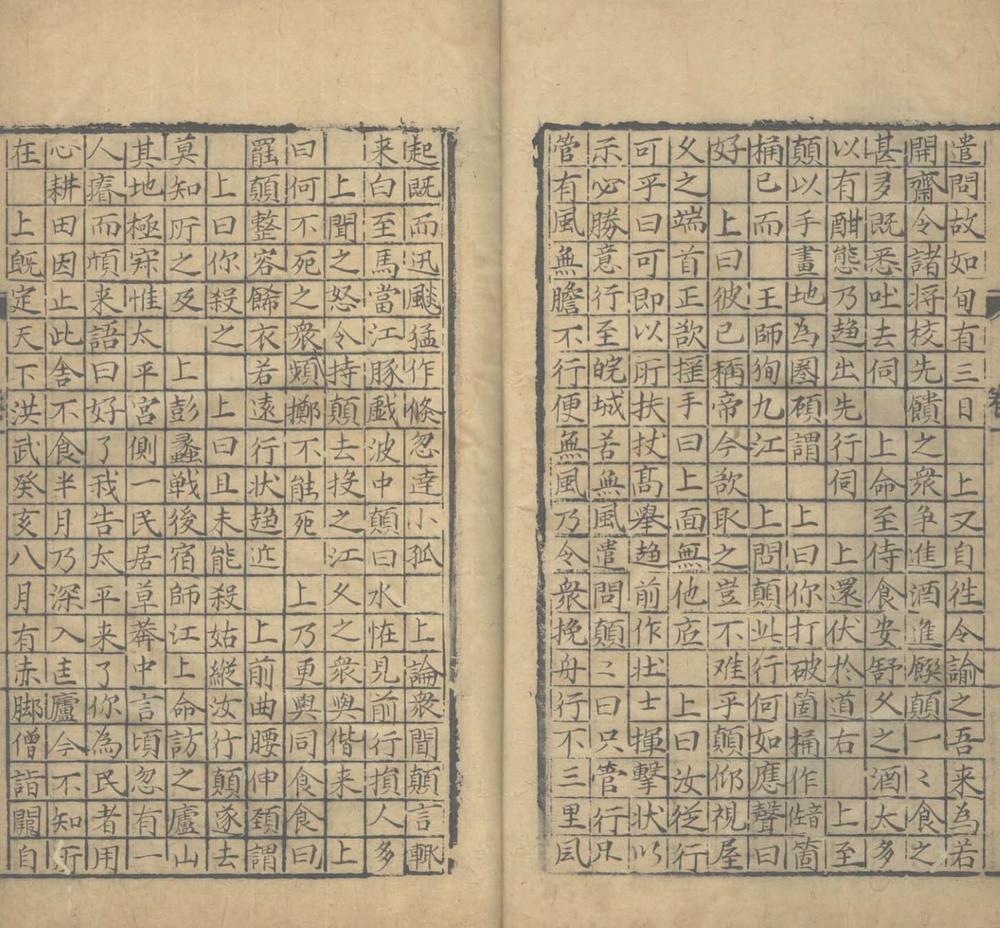 遣問故如旬有三日 上又自徃令諭之吾来為若
開齋令諸将校先饋之衆争進酒進饌顛一〻食之
甚多既悉吐去伺 上命至侍食安舒久之 酒太多
以有酣態乃趋出先行伺 上還伏於道右 上至
顛以手畫地為圏碩謂 上曰你打破箇桶作箇
桶已而 王師狥九江 上問顛此行何如應聲曰
好 上曰彼已稱帝今欲取之豈不难乎顛仰視屋
久之端首正欲手曰上面無他㡳 上曰汝从行
可乎曰可即以所扶扙髙舉趋前作壮士揮擊状以
示必勝意行至皖城苦無風遣問顛〻曰只管行只
管有風無膽不行便無風乃令衆挽舟行不三里風
起既而迅飈猛作倏忽逹小孤 上論衆聞顛言輒
来白至馬當江豚戲波中顛曰水怪見前行損人多
上聞之怒令持顛去投之江久之衆與偕来 上
曰何不死之衆頬擲不能死 上乃更與同食食曰
罷顛整容餙衣若遠行状趋近 上前曲腰伸頚謂
上曰你殺之 上曰且未能殺姑縱汝行顛遂去
莫知所之及 上彭蠡戰後宿師江上命訪之廬山
其地極㝥惟太平宮側一民居草莽中言頃忽有一
人瘠而頎来語曰好了我告太平来了你為民者用
心耕田因止此舍不食半月乃深入匡廬今不知所
在 上既定天下洪武癸亥八月有赤脚僧詣闕自